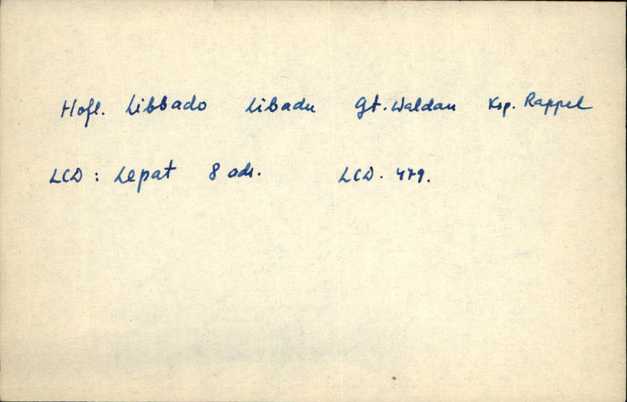 Hofl. Libbado Libadu Gt. Waldau Ksp. Rappel
LCD : Lepat 8 adr. LCD. 479.